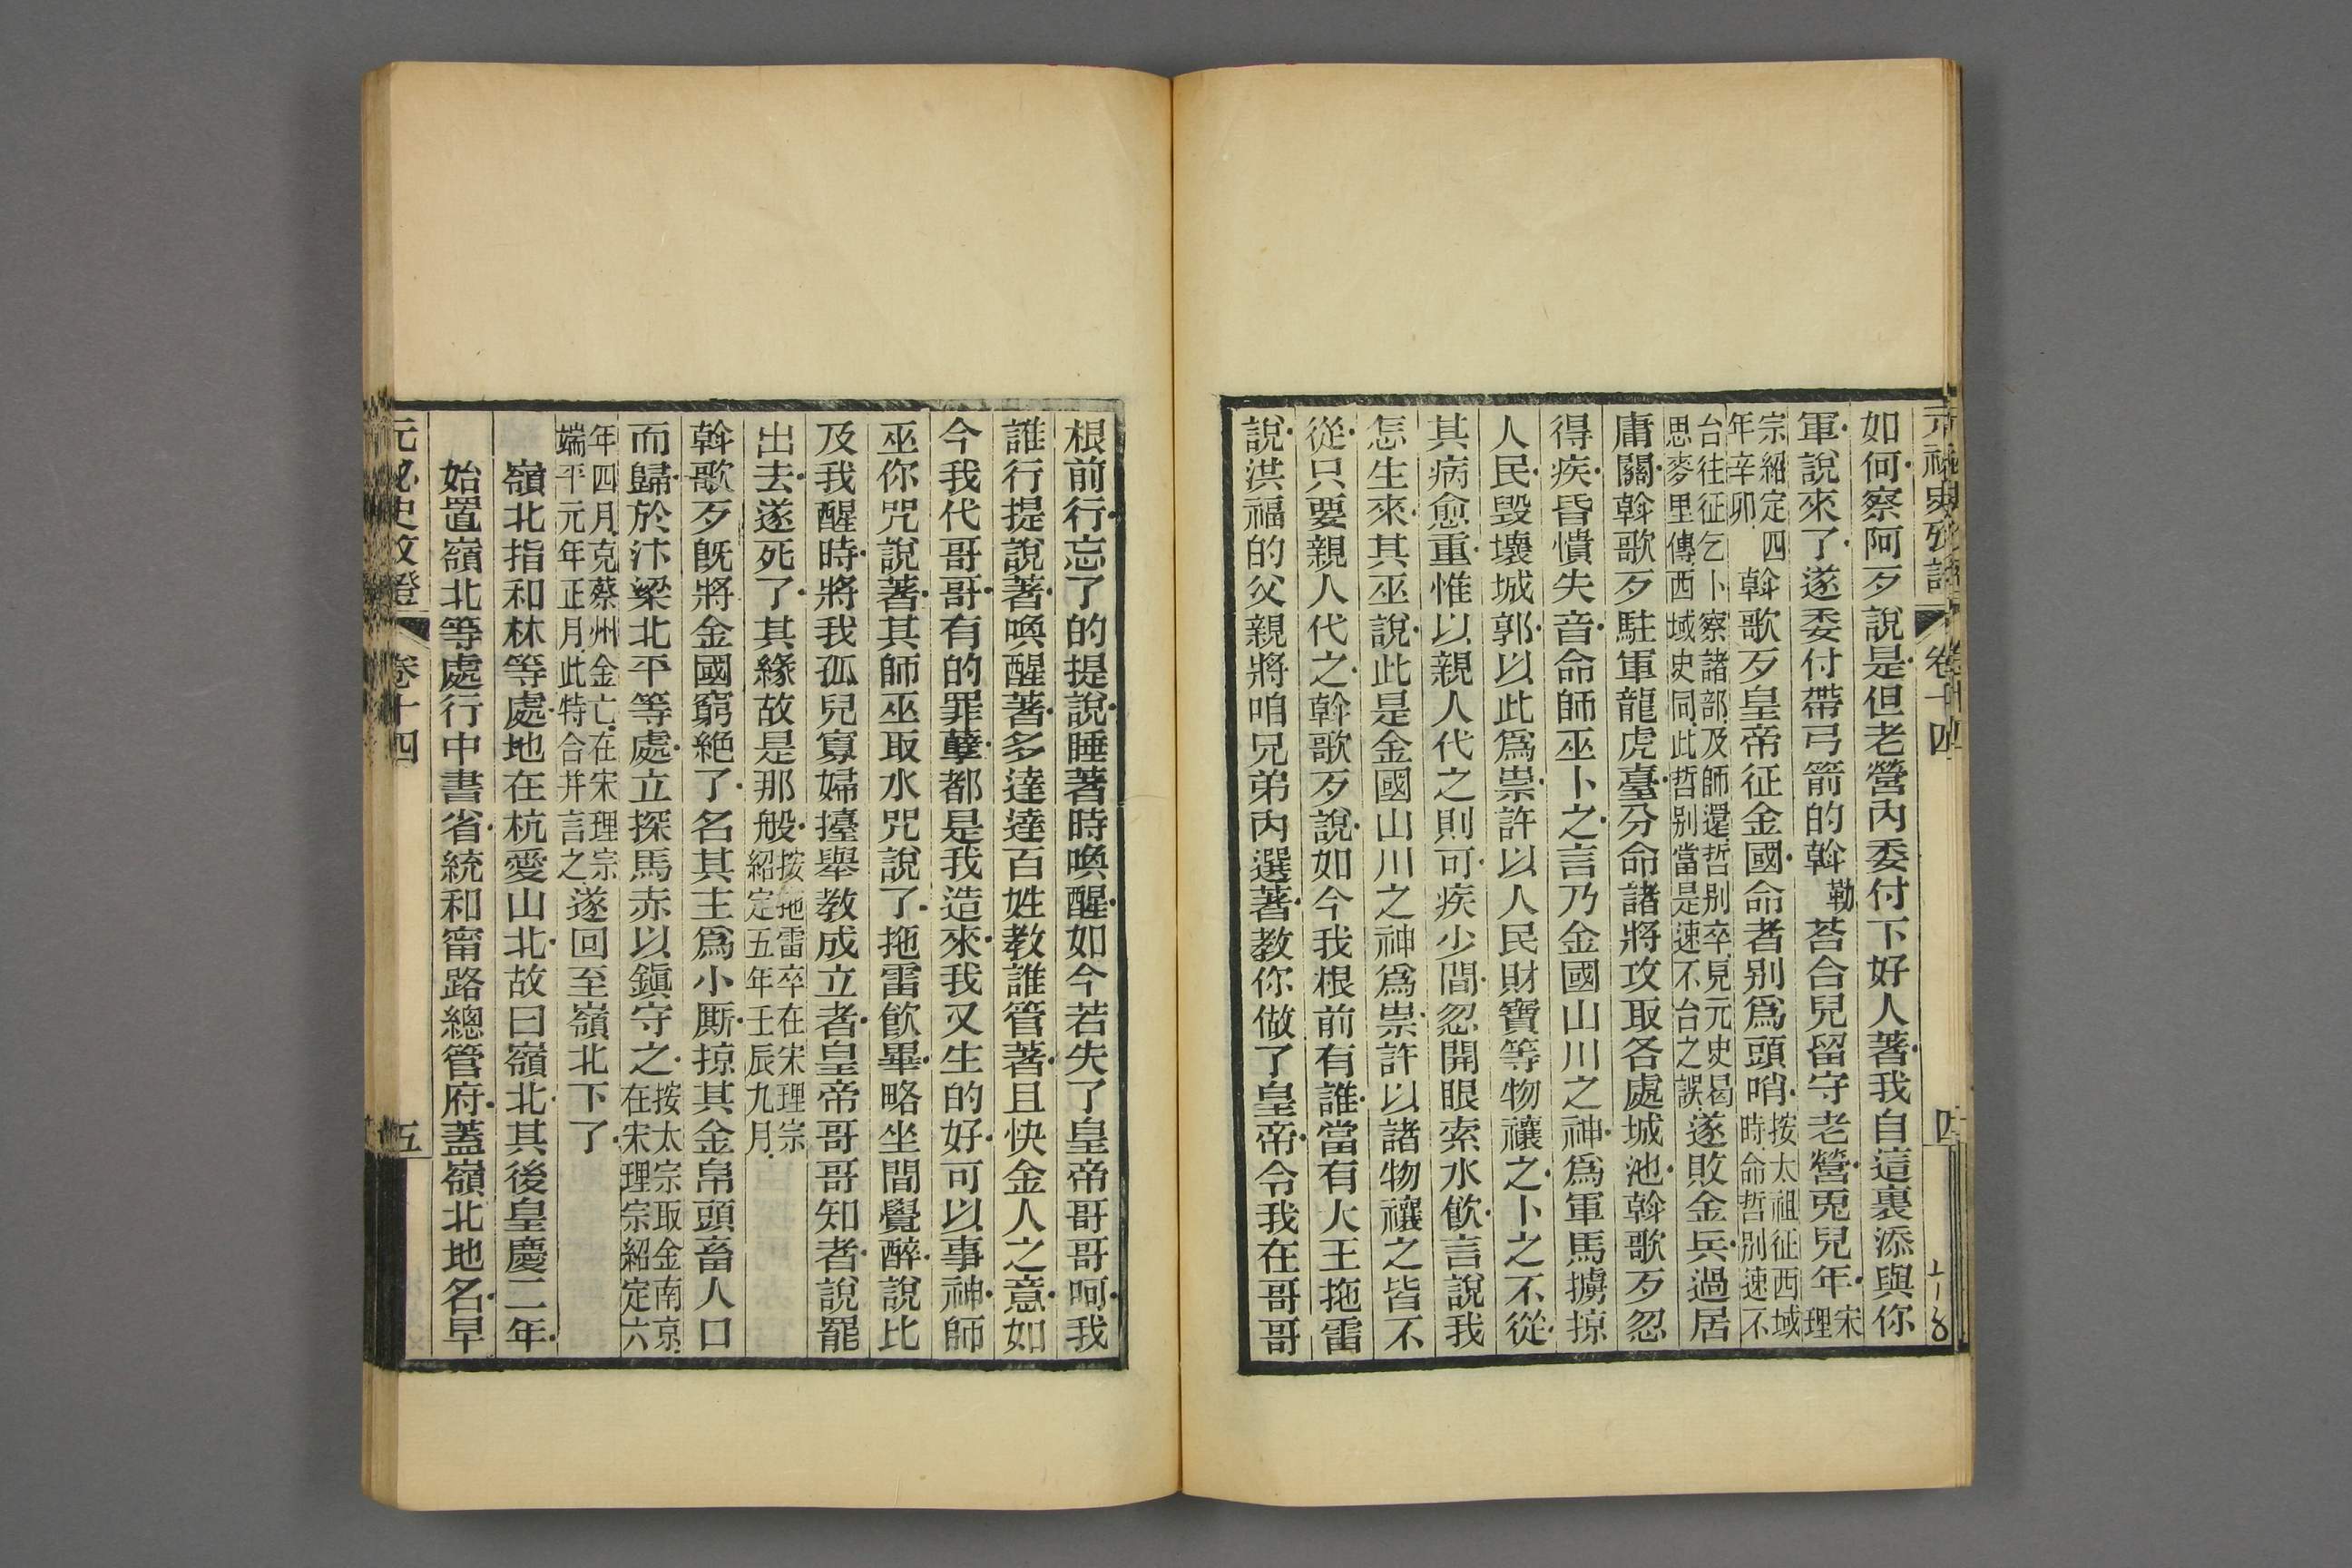 元祕史攷證 卷十四 四
如何察阿歹說是但老營內委付下好人著我自這裏添與你
軍說來了遂委付帶弓箭的斡勒荅合兒留守老營兎兒年宋理
宗紹定四年辛卯斡歌歹皇帝征金國命者别爲頭哨按太祖征西域時命哲别速不
台往征乞卜察諸部及師還哲别卒見元史曷思麥里傳西域史同此哲别當是速不台之誤遂敗金兵過居
庸關斡歌歹駐軍龍虎臺分命諸將攻取各處城池斡歌歹忽
得疾昏憒失音命師巫卜之言乃金國山川之神爲軍馬擄掠
人民毀壞城郭以此爲祟許以人民財寶等物禳之卜之不從
其病愈重惟以親人代之則可疾少間忽開眼索水飮言說我
怎生來其巫說此是金國山川之神爲祟許以諸物禳之皆不
從只要親人代之斡歌歹說如今我根前有誰當有大王拖雷
說洪福的父親將咱兄弟內選著教你做了皇帝令我在哥哥
根前行忘了的提說睡著時喚醒如今若失了皇帝哥哥呵我
誰行提說著喚醒著多達達百姓教誰管著且快金人之意如
今我代哥哥有的罪孽都是我造來我又生的好可以事神師
巫你咒說著其師巫取水咒說了拖雷飮畢略坐間覺醉說比
及我醒時將我孤兒寡婦擡舉教成立者皇帝哥哥知者說罷
出去遂死了其緣故是那般按拖雷卒在宋理宗紹定五年壬辰九月
斡歌歹旣將金國窮絶了名其主爲小厮掠其金帛頭畜人口
而歸於汴梁北平等處立探馬赤以鎭守之按太宗取金南京在宋理宗紹定六
年四月克蔡州金亡在宋理宗端平元年正月此特合并言之遂回至嶺北下了
嶺北指和林等處地在杭愛山北故曰嶺北其後皇慶二年
始置嶺北等處行中書省統和甯路總管府蓋嶺北地名早
元祕史攷證 卷十四 五